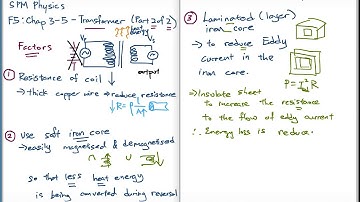 SPM Physics
F5: Chap 3-5 - Transformer (Part 2 of 2)
Factors
heat energy
output
① Resistance of coil
→ thick copper wire → reduce resistance
↓R = ρ l / A↑
② Use soft iron core
→ easily magnetised & demagnetised
so that less heat energy
is being converted during reversal
③ Laminated (layer)
iron core
→ to reduce Eddy
current in the
iron core.
P = I²R
→ Insulate sheet
to increase the resistance
to the flow of eddy current
∴ Energy loss is reduce.